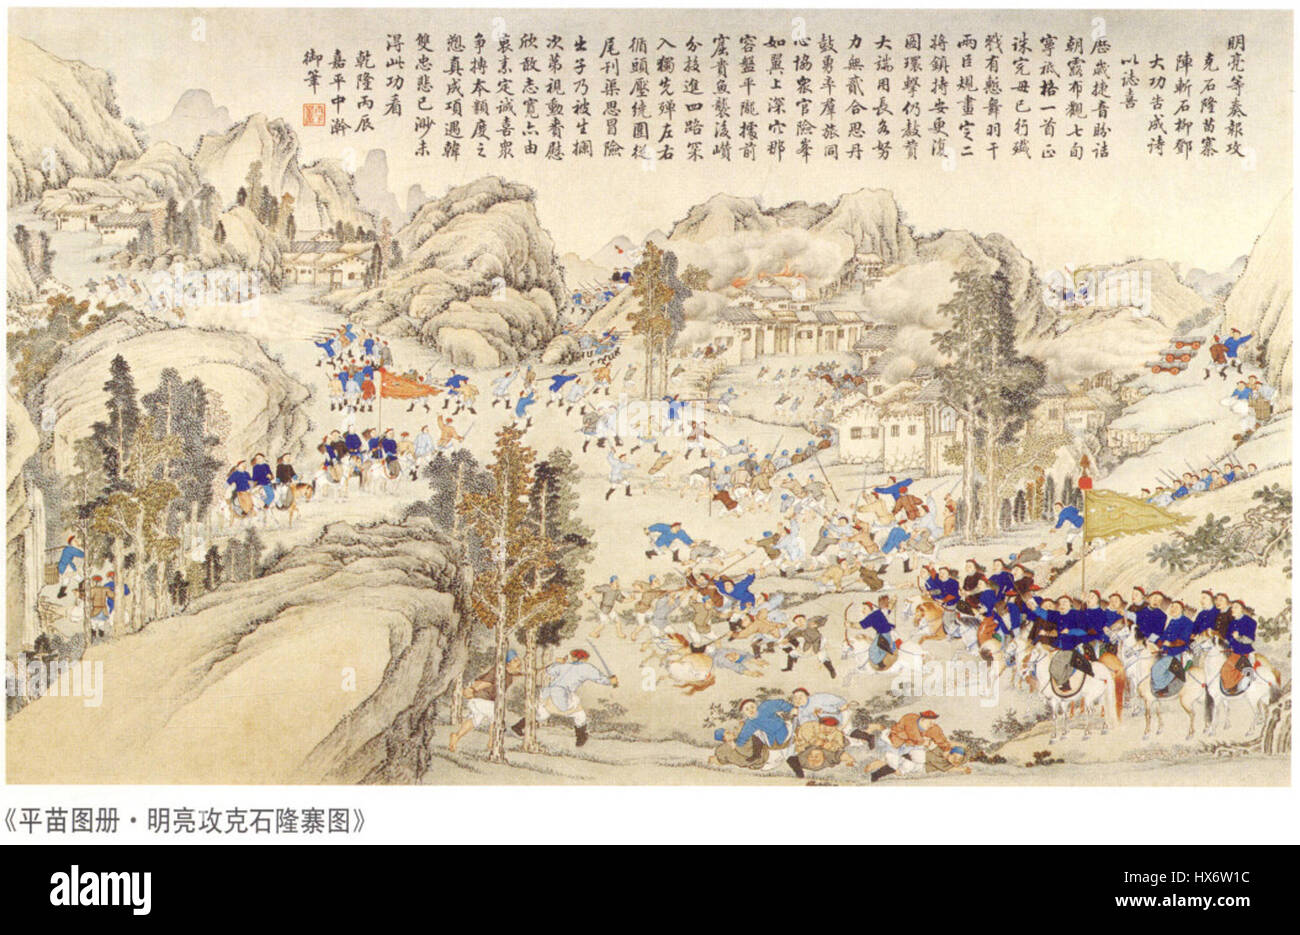 明亮等奏報攻
克石隆苗寨
陣斬石柳鄧
大功告成詩
以誌喜
歷歲捷音盼詰
朝露布觀七旬
寧祗格一首正
誅完毋已行殲
戰有慙舞羽干
兩臣規畫定二
將鎮持安更復
圖環擊仍敖賁
大端用長名努
力無貳合思丹
鼓勇率羣旅同
心協眾官險峯
如翼上深穴那
容盤平隴據前
窟貴魚襲後嶺
分技進四路策
入獨先殫左右
循頭壓繞圍從
尾刊渠思冒險
生子乃被生擒
次第視勳賚慰
欣敵志寬亦由
衷素定誠喜眾
爭搏本類度之
愬真成項遇韓
雙忠悲已渺未
得此功看
乾隆丙辰
嘉平中澣
御筆
《平苗图册·明亮攻克石隆寨图》
alamy
Image ID: HX6W1C
www.alamy.com